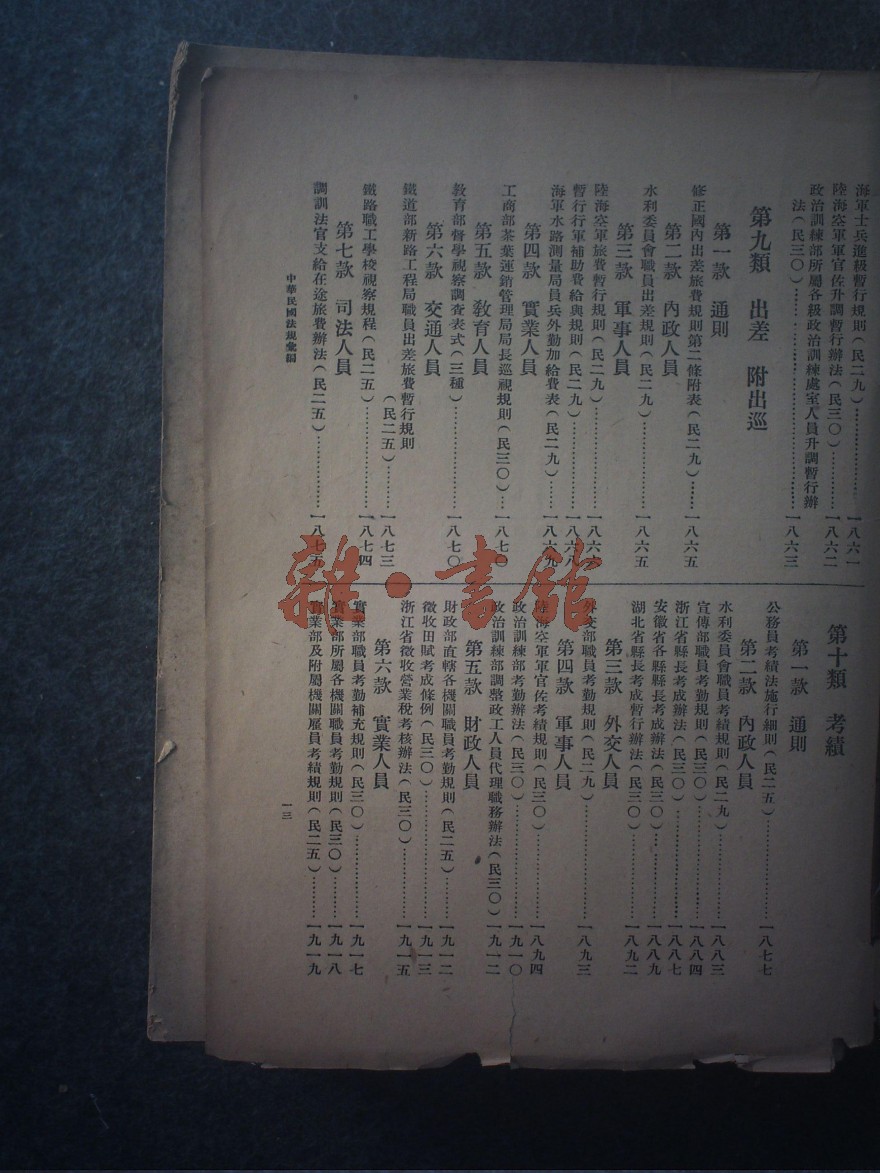 海軍士兵進級暫行規則(民二九)…………一八六一
陸海空軍軍官佐升調暫行辦法(民三〇)……一八六二
政治訓練部所屬各級政治訓練處室人員升調暫行辦
法(民三〇)…………一八六三
第九類 出差 附出巡
第一款 通則
修正國內出差旅費規則第二條附表(民二九)……一八六五
第二款 內政人員
水利委員會職員出差規則(民二九)…………一八六五
第三款 軍事人員
陸海空軍旅費暫行規則(民二九)…………一八六六
暫行行軍補助費給與規則(民二九)…………一八六八
海軍水路測量局員兵外勤加給費表(民二九)……一八六九
第四款 實業人員
工商部茶葉運銷管理局局長巡視規則(民三〇)…一八七〇
第五款 教育人員
教育部督學視察調查表式(三種)…………一八七〇
第六款 交通人員
鐵道部新路工程局職員出差旅費暫行規則
(民二五)…………一八七三
鐵路職工學校視察規程(民二五)…………一八七四
第七款 司法人員
調訓法官支給在途旅費辦法(民二五)…………一八七五
第十類 考績
第一款 通則
公務員考績法施行細則(民二五)…………一八七七
第二款 內政人員
水利委員會職員考績規則(民二九)…………一八八三
宣傳部職員考勤規則(民三〇)…………一八八四
浙江省縣長考成辦法(民三〇)…………一八八七
安徽省各縣縣長考成辦法(民三〇)…………一八八九
湖北省縣長考成暫行辦法(民三〇)…………一八九二
第三款 外交人員
外交部職員考勤規則(民二九)…………一八九三
第四款 軍事人員
陸海空軍軍官佐考績規則(民三〇)…………一八九四
政治訓練部考勤辦法(民三〇)…………一九一〇
政治訓練部調整政工人員代理職務辦法(民三〇)一九一二
第五款 財政人員
財政部直轄各機關職員考勤規則(民二五)……一九一二
徵收田賦考成條例(民三〇)…………一九一三
浙江省徵收營業稅考核辦法(民三〇)…………一九一五
第六款 實業人員
實業部職員考勤補充規則(民三〇)…………一九一七
實業部所屬各機關職員考勤規則(民三〇)……一九一八
實業部及附屬機關雇員考績規則(民二五)……一九一九
中華民國法規彙編
一三
雜·書館